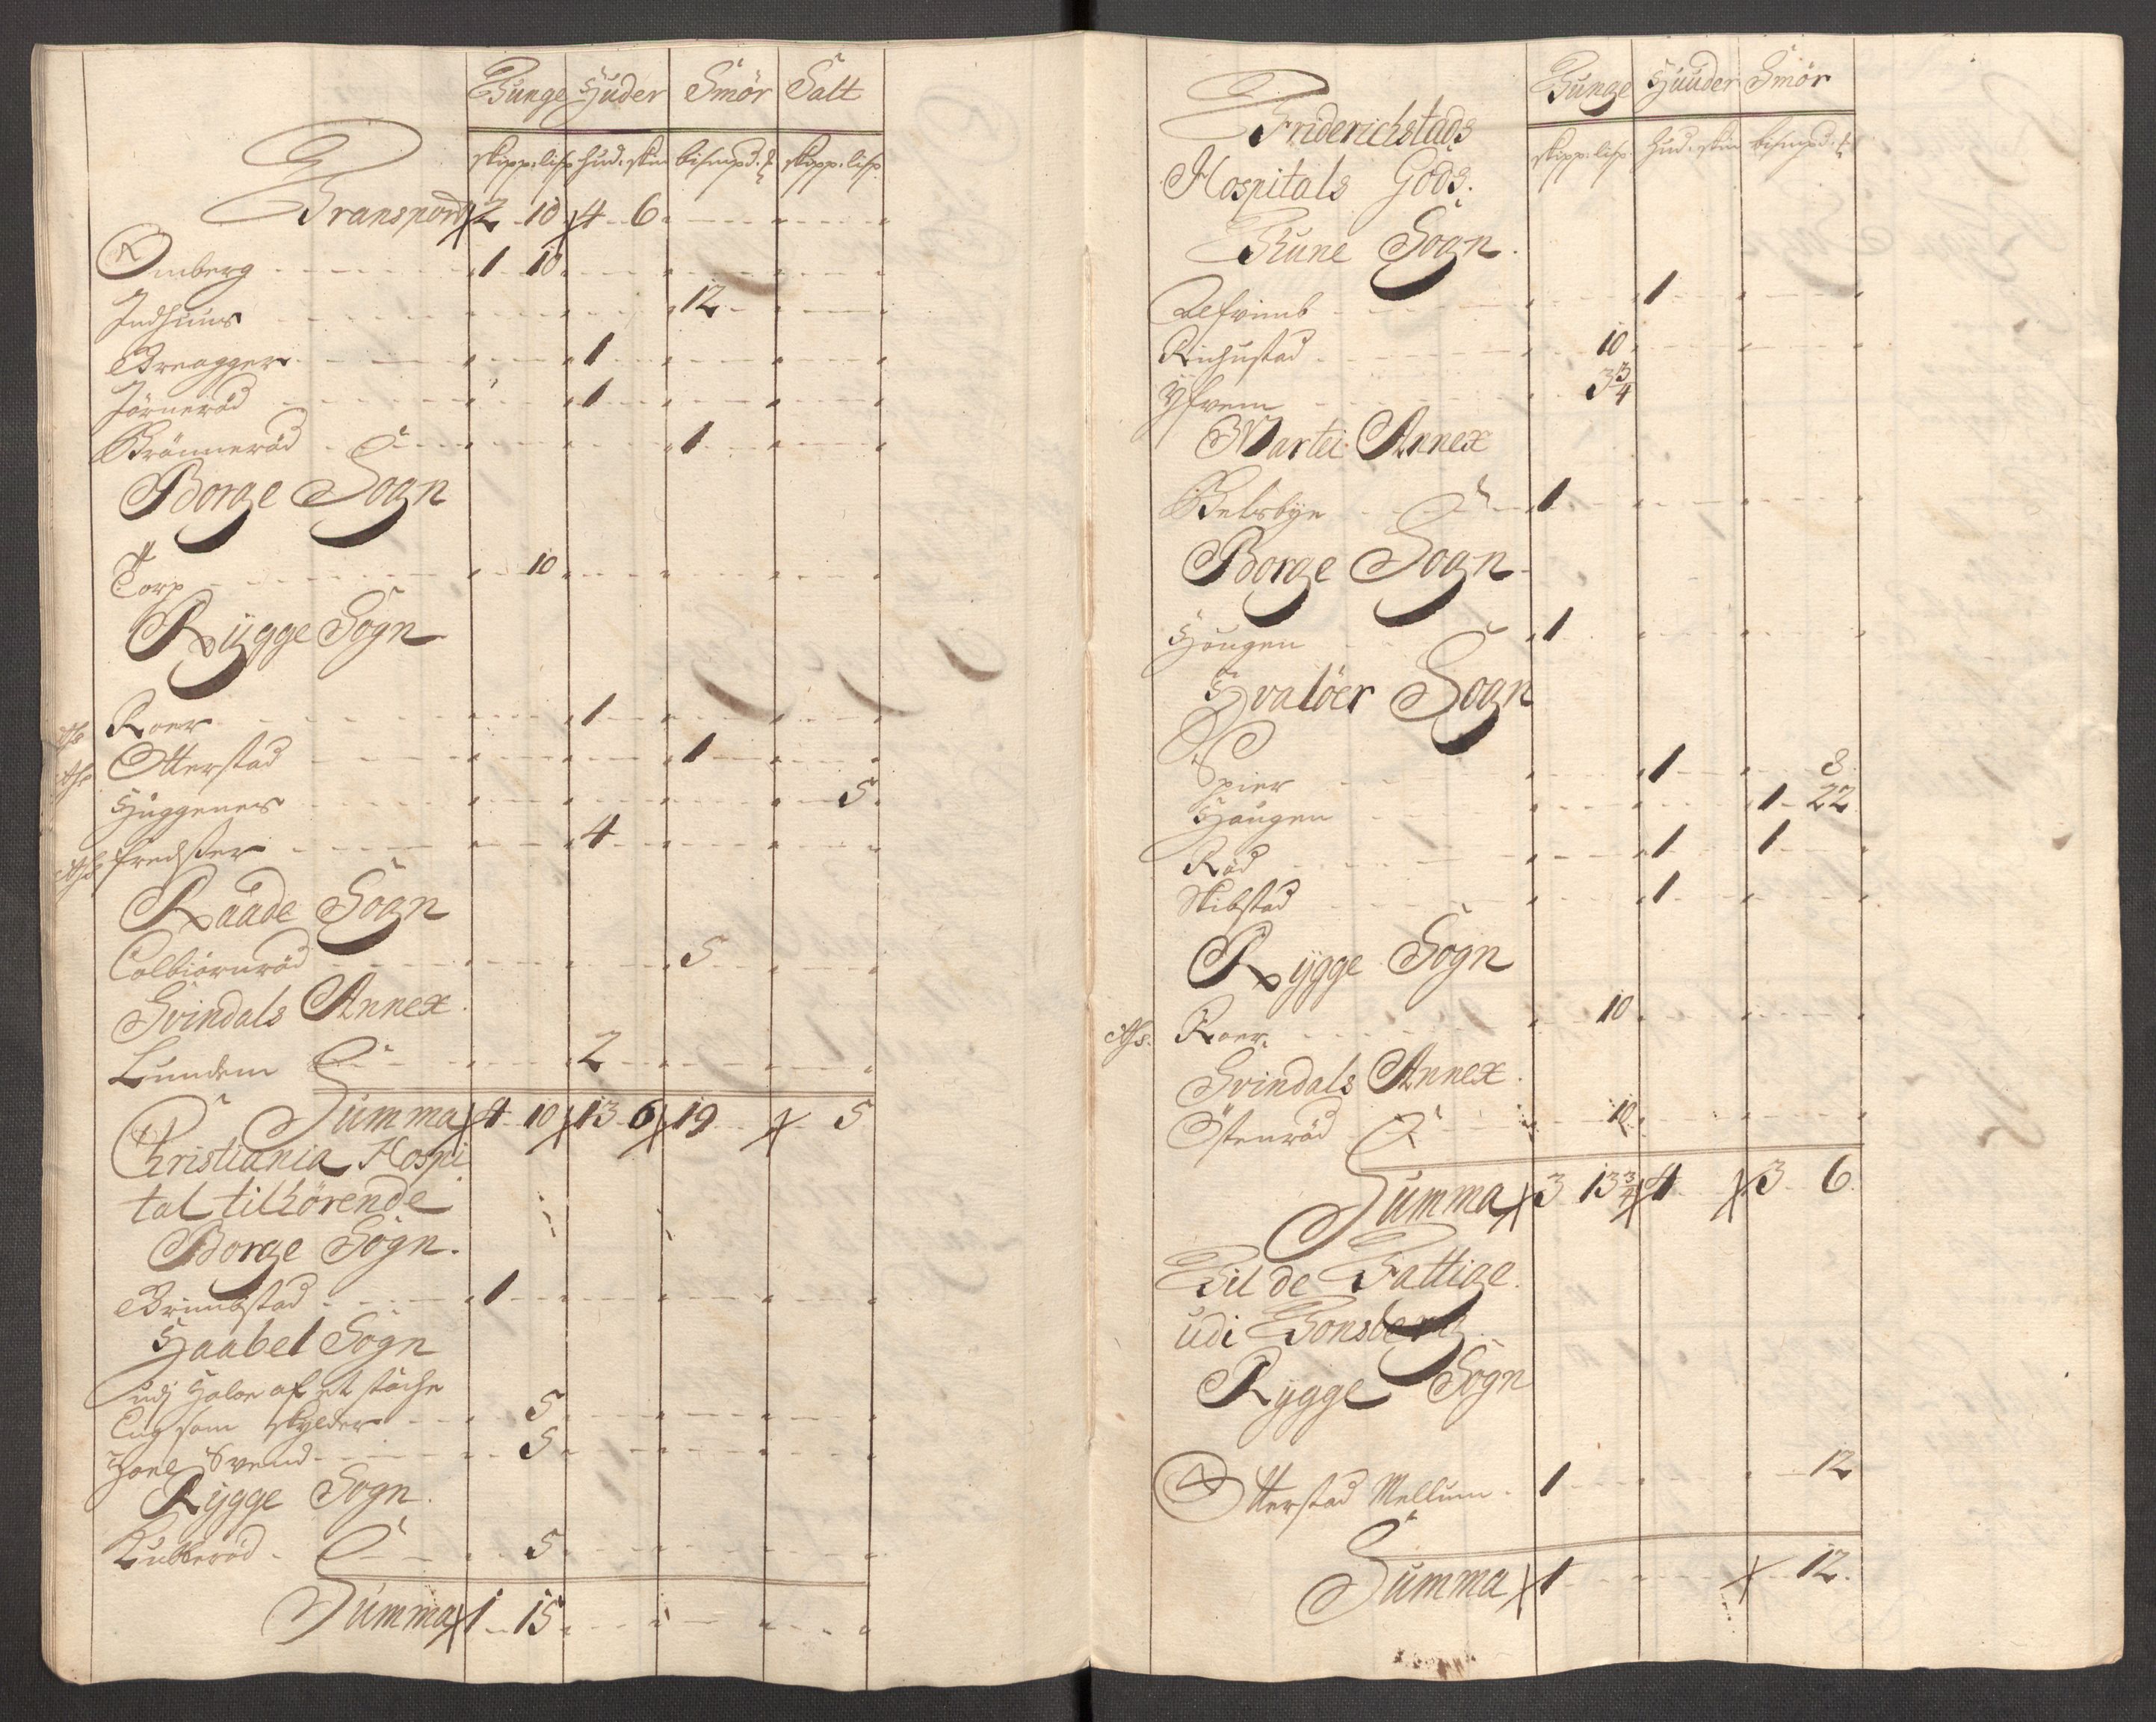 Tunge Huder Smör Salt
skipp: lisp hud: skin bismpd: ℔ skipp: lisp
Transport 2 10 4 6
Omberg 1 10
Indhuus 12
Breagger 1
Jörneröd 1
Grönneröd 1
Borge Sogn
Torp 10
Rygge Sogn
Roer 1
Otterstad 1
Huggenes 5
fredster 4
Raade Sogn
Colbiörnröd 5
Svindals Annex.
Lundem 2
Summa 4 10 13 6 19 5
Christiania Hospi
tal tilhörende
Borge Sogn.
Brimbstad 1
Haabel Sogn
udj Haloe af et støche
Eng som skylder 5
Svend 5
Rygge Sogn.
Lukkeröd 5
Summa 1 15
Tunge Huuder Smör
skipp: lisp hud: skin bismpd: ℔
Friderichstads
Hospitals Gods.
Thune Sogn.
Alfvimb 1
Richustad 10
Yfven 3 3/4
Vartei Annex
Belsbye 1
Borge Sogn
Hougen 1
Hvalöer Sogn
Spier 1 8
Haugen 1 22
Röd 1 1
Skibstad 1
Rygge Sogn
Roer. 10
Svindals Annex.
Östenröd 10
Summa 3 13 3/4 4 3 6
Til de Fattige
udi Tonsberg.
Rygge Sogn
Otterstad Mellum 1 12
Summa 1 12.